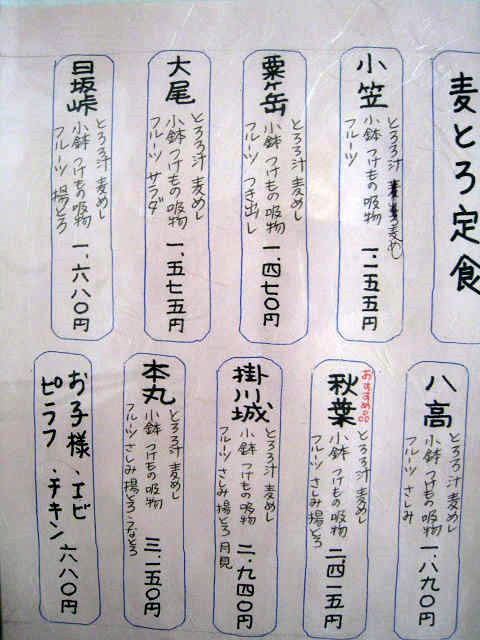 麦とろ定食
小笠
とろろ汁 麦めし
小鉢 つけもの 吸物
フルーツ
一、二五五円
粟ヶ岳
とろろ汁 麦めし
小鉢 つけもの 吸物
フルーツ つき出し
一、四七〇円
大尾
とろろ汁 麦めし
小鉢 つけもの 吸物
フルーツ サラダ
一、五七五円
日坂峠
とろろ汁 麦めし
小鉢 つけもの 吸物
フルーツ 揚とろ
一、六八〇円
八高
とろろ汁 麦めし
小鉢 つけもの 吸物
フルーツ さしみ
一、八九〇円
おすすめ品
秋葉
とろろ汁 麦めし
小鉢 つけもの 吸物
フルーツ さしみ 揚とろ
二、四一五円
掛川城
とろろ汁 麦めし
小鉢 つけもの 吸物
フルーツ さしみ 揚とろ 月見
二、九四〇円
本丸
とろろ汁 麦めし
小鉢 つけもの 吸物
フルーツ さしみ 揚とろ うなとろ
三、一五〇円
お子様、エビ
ピラフ、チキン 六八〇円